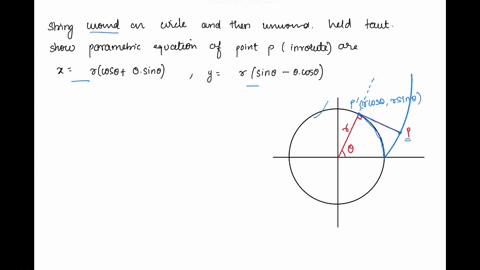 String wound on circle and then unwound. held taut.
show parametric equation of point p ( involute) are
x = r(cosθ + θ.sinθ) , y = r (sinθ - θ.cosθ)
p' (rcosθ, rsinθ)
r
P
θ